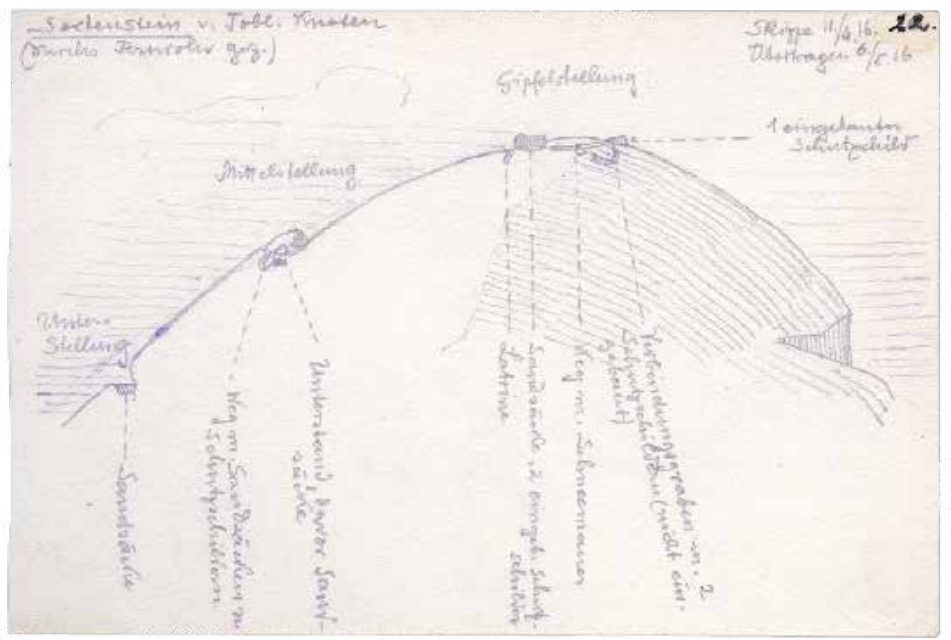 Sextenstein v. Tobl. Knoten
(durchs Fernrohr gez.)
Skizze 11/4 16.
22.
Übertragen 6/5 16
Gipfelstellung
1 eingebauter
Schutzschild
Mittelstellung
Unter-
Stellung
Sandsäcke
Weg m. Sandsäcken u.
Schutzschildern
Unterstand, davor Sand-
säcke
Latrine
Sandsäcke, 2 eingeb. Schutz-
schilder
Weg m. Schneemauer
Verbindungsgraben m. 2
Schutzschildern (nicht ein-
gebaut)